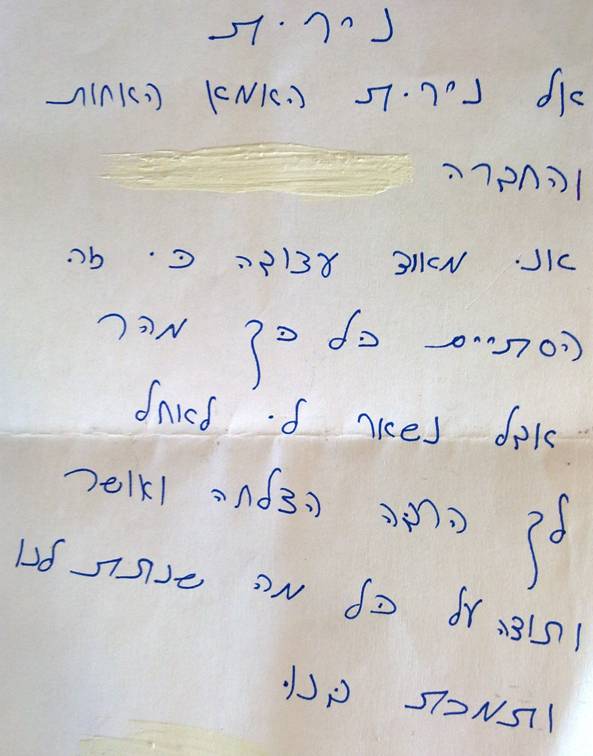 ניירית
אל ניירית האמא האחות
והחברה
אני מאוד עצובה כי זה
הסתיים כל כך מהר
אבל נשאר לי לאחל
לך הרבה הצלחה ואושר
ותודה על כל מה שנתת לנו
ותמכת בנו